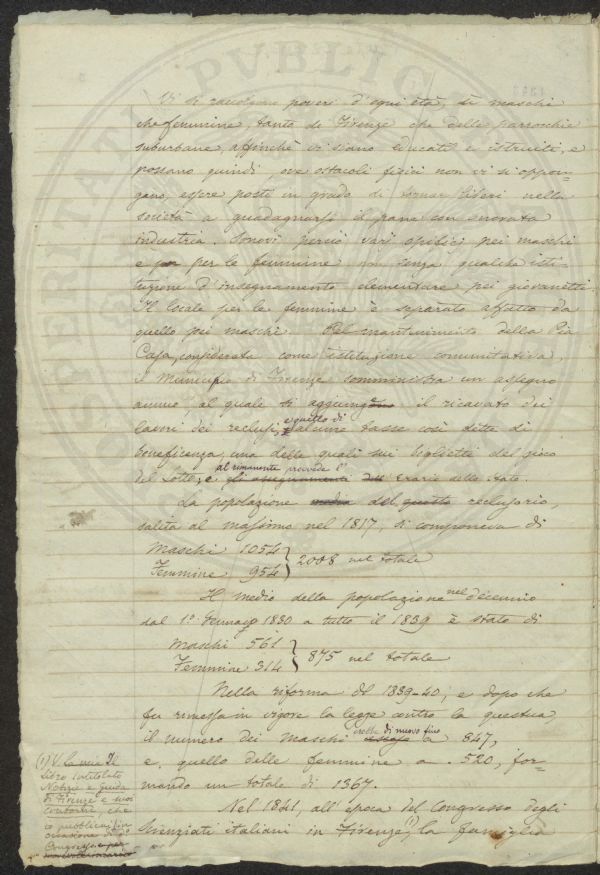 Vi si raccolgono poveri d'ogni età, sì maschi
che femmine, tanto di Firenze che delle parrocchie
suburbane, affinchè vi siano educati e istruiti, e
possano quindi, ove ostacoli fisici non vi si oppon-
gano, essere posti in grado di tornar liberi nella
società a guadagnarsi il pane con onorata
industria. Sonovi perciò varj opifici pei maschi
e per le femmine senza qualche isti-
tuzione d'insegnamento elementare pei giovanetti.
Il locale per le femmine è separato affatto da
quello pei maschi. Pel mantenimento della Pia
Casa, considerata come istituzione comunitativa,
il Municipio di Firenze somministra un assegno
annuo, al quale si aggiunge il ricavato dei
lavori dei reclusi, e quello di alcune tasse così dette di
beneficenza, una delle quali sui biglietti del gioco
del Lotto; e al rimanente provvede l' erario dello stato.
La popolazione media del questo reclusorio,
salita al massimo nel 1817, si componeva di
Maschi 1054
Femmine 954 } 2008 nel totale
Il medio della popolazione nel decennio
dal 1.º Gennajo 1830 a tutto il 1839 è stato di
Maschi 561
Femmine 314 } 875 nel totale
Nella riforma del 1839-40, e dopo che
fu rimessa in vigore la legge contro la questua,
il numero dei maschi crebbe di nuovo fino a 847,
e quello delle femmine a 520, for-
mando un totale di 1367.
Nel 1841, all'epoca del Congresso degli
Scienziati italiani in Firenze (1), la famiglia
(1) V. la mia Il
Libro intitolato
Notizie e guida
di Firenze e suoi
contorni, che
io pubblicai in
occasione di
Congresso e per